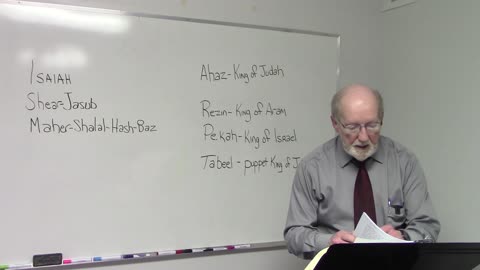 Isaiah
Shear-Jasub
Maher-Shalal-Hash-Baz
Ahaz-King of Judah
Rezin-King of Aram
Pekah-King of Israel
Tabeel - puppet King of J